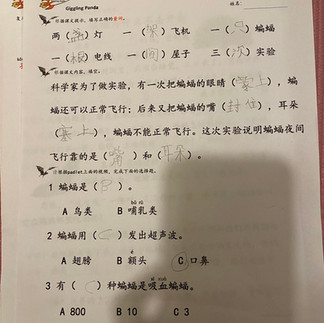 Giggling Panda
姓名:
根据课文提示,填写正确的量词。
两(盏)灯 一(架)飞机 一(只)蝙蝠
一(根)电线 一(间)屋子 三(次)实验
根据课文内容,填空。
科学家为了做实验,有一次把蝙蝠的眼睛(蒙上),蝙
蝠还可以正常飞行;后来又把蝙蝠的嘴(封住),耳朵
(塞上),蝙蝠不能正常飞行。这次实验说明蝙蝠夜间
飞行靠的是(嘴)和(耳朵)。
根据padlet上面的视频,完成下面的选择题。
1 蝙蝠是(B)。
A 鸟类 B 哺乳类
2 蝙蝠用(C)发出超声波。
A 翅膀 B 额头 C 口鼻
3 有( )种蝙蝠是吸血蝙蝠。
A 800 B 10 C 3